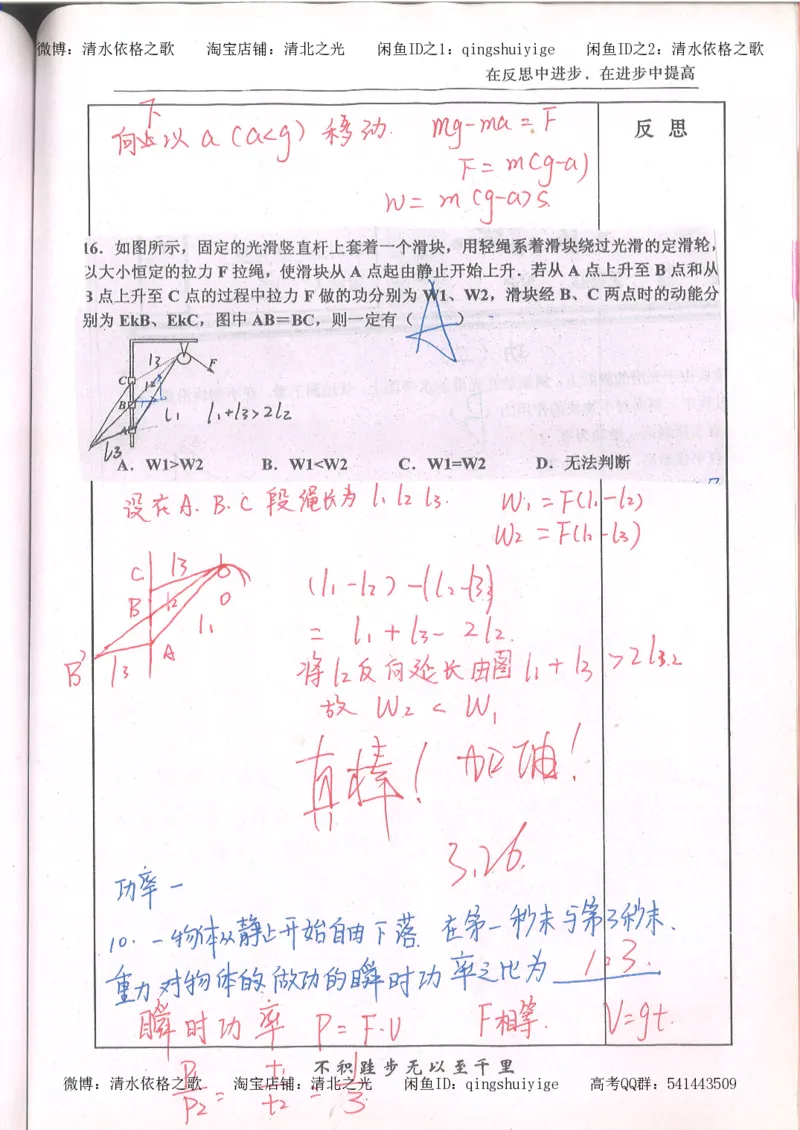 微博：清水依格之歌 淘宝店铺：清北之光 闲鱼ID之1：qingshuiyige 闲鱼ID之2：清水依格之歌
在反思中进步，在进步中提高
反 思
下
向 以 a (a<g) 移动. mg-ma=F
F=m(g-a)
W=m(g-a)s.
16．如图所示，固定的光滑竖直杆上套着一个滑块，用轻绳系着滑块绕过光滑的定滑轮，
以大小恒定的拉力 F 拉绳，使滑块从 A 点起由静止开始上升．若从 A 点上升至 B 点和从
B 点上升至 C 点的过程中拉力 F 做的功分别为 W1、W2，滑块经 B、C 两点时的动能分
别为 EkB、EkC，图中 AB＝BC，则一定有（ A ）
l3
F
C
l2
B
l1 l1+l3>2l2
A
l3
A．W1>W2 B．W1<W2 C．W1=W2 D．无法判断
设在A. B. C 段绳长为 l1 l2 l3. W1=F(l1-l2)
W2=F(l2-l3)
C l3
B l2 O
l1
A
B' l3
(l1-l2)-(l2-l3)
= l1+l3-2l2.
将l2反向延长由图 l1+l3>2l2
故 W2<W1
真棒！加油！
3.26.
功率一
10. 一物体从静止开始自由下落. 在第一秒末与第3秒末.
重力对物体的做功的瞬时功率之比为 1:3.
瞬时功率 P=F·V F相等. V=gt.
P1/P2 = t1/t2 = 1/3
不积跬步无以至千里
微博：清水依格之歌 淘宝店铺：清北之光 闲鱼ID：qingshuiyige 高考QQ群：541443509